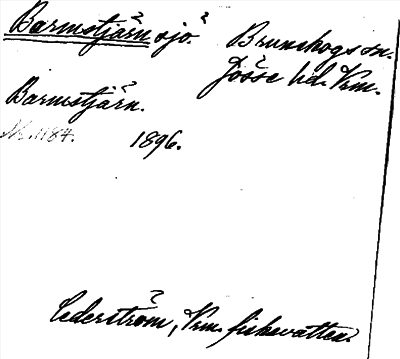 Barmstjärn sjö.
Brunskogs sn.
Jösse hd. Vrm.
Barmstjärn.
1896.
Cederström, Vrm. fiskevatten.